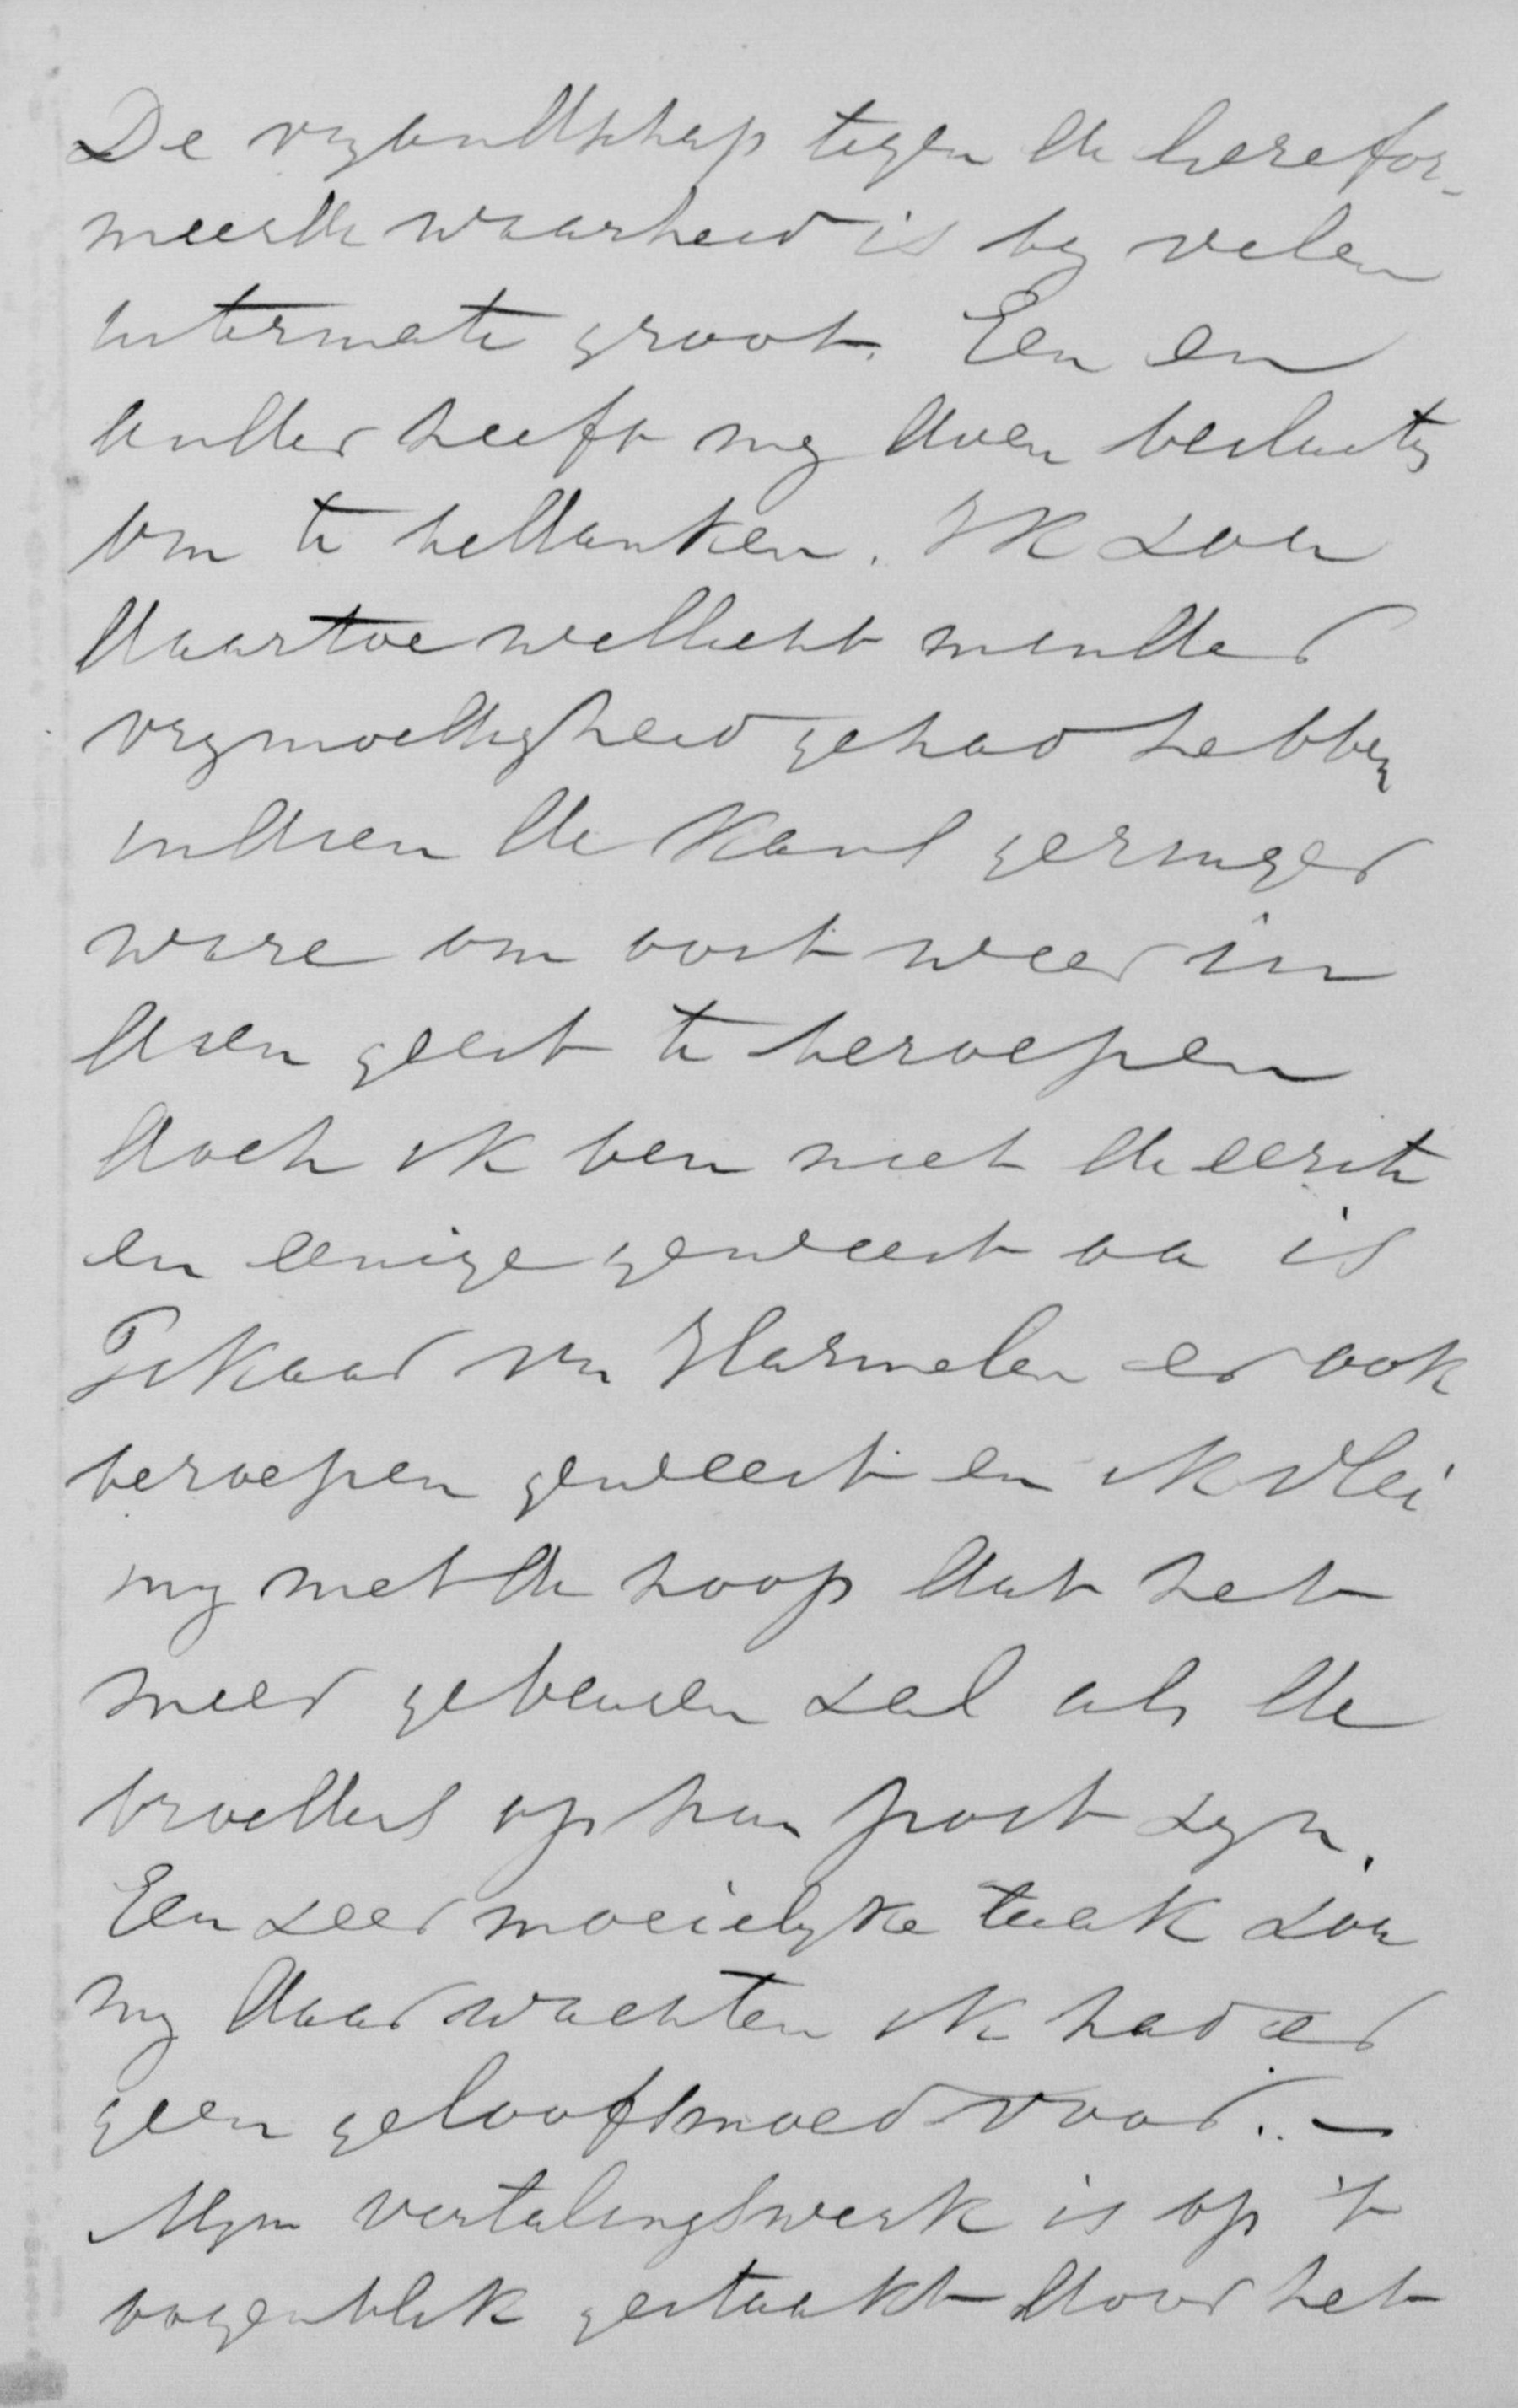 De vijandschap tegen de Gerefor-
meerde waarheid is bij velen
uitermate groot. Een en
ander heeft mij doen besluiten
om te bedanken. Ik zou
daartoe wellicht minder
vrijmoedigheid gehad hebben
indien de kans geringer
ware om ooit weer in
dien geest te beroepen
doch ik ben niet de eerste
en eenige geweest oa is
Pikaar van Harmelen er ook
beroepen geweest en ik vlei
mij met de hoop dat het
meer gebeuren zal als de
broeders op hun post zijn.
Een zeer moeielijke taak zou
mij daar wachten ik had er
geen geloofsmoed voor. —
Mijn vertalingswerk is op 't
oogenblik gestaakt door het